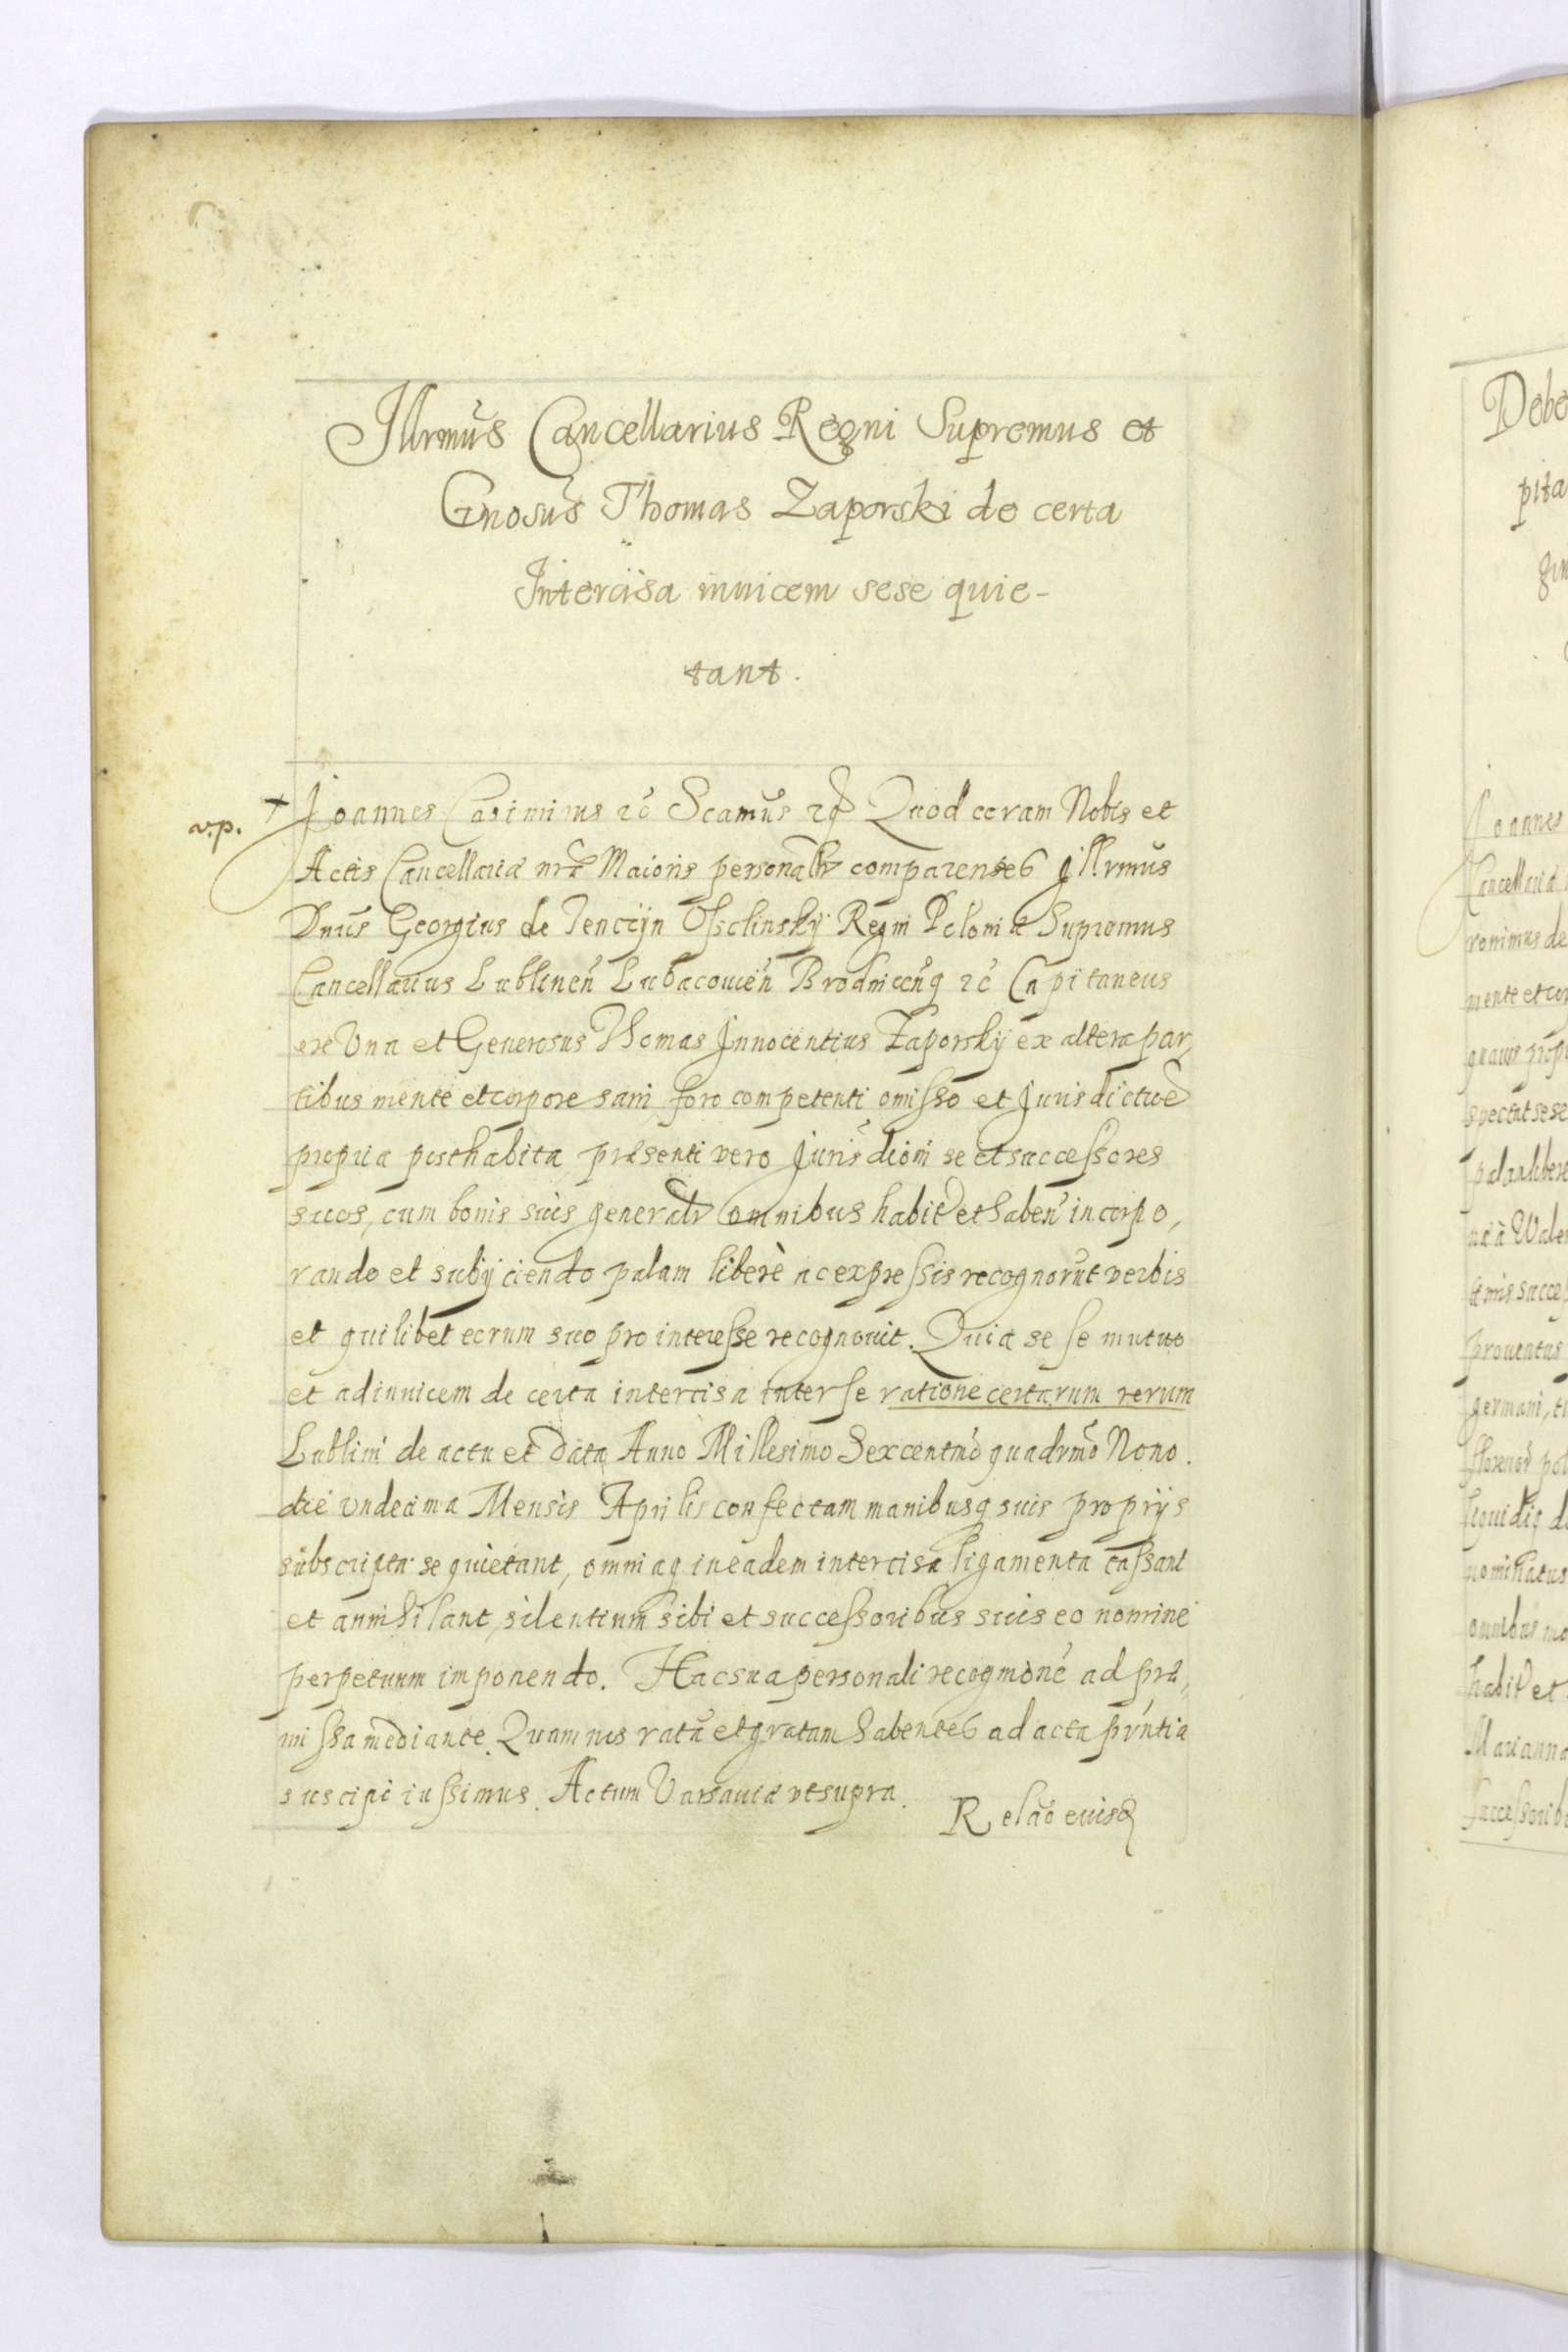 Jllrmus Cancellarius Regni Supremus et
Gnosus Thomas Zaporski de certa
Intercisa inuicem sese quie-
tant.
v.p.
Joannes Casimirus &c Scamus &c Quod coram Nobis et
Actis Cancellariæ nræ Maioris personalr comparentes Jllrmus
Dnus Georgius de Tenczÿn Ossolinskÿ Regni Poloniæ Supremus
Cancellarius Lublinen̄ Lubacouien̄ Brodnicen̄q &c Capitaneus
ex Vna et Generosus Thomas Jnnocentius Zaporskÿ ex altera par,
tibus mente et corpore sani, foro competenti omisso et Jurisdictioē
propria posthabita, præsenti vero Jurisdioni se et successores
suos, cum bonis suis generalr omnibus habit et haben̄ incorpo,
rando et subÿciendo palam liberè ac expressis recognorūt verbis
et quilibet eorum suo pro interesse recognouit. Quia se se mutuo
et adinuicem de certa intercisa inter se ratione certarum rerum
Lublini de actu et data Anno Millesimo Sexcentmō quadrmō Nono.
die vndecima Mensis Aprilis confectam manibusq suis proprÿs
subscripta se quietant, omniaq in eadem intercisa ligamenta cassant
et annihilant, silentium sibi et successoribus suis eo nomine
perpetuum imponendo. Hac sua personali recognōne ad præ,
missa mediante. Quam nos ratā et gratam habentes ad acta pn̄tia
suscipi iussimus. Actum Varsauiæ vt supra.
Relaō euisd
Debe
pita
Joannes
Cancellariæ
ronimus de
mente et cor
spectat sese
palam libere
prouentus
germani, ti
nominatus
omnibus mo
habit et
Marianna
successorib